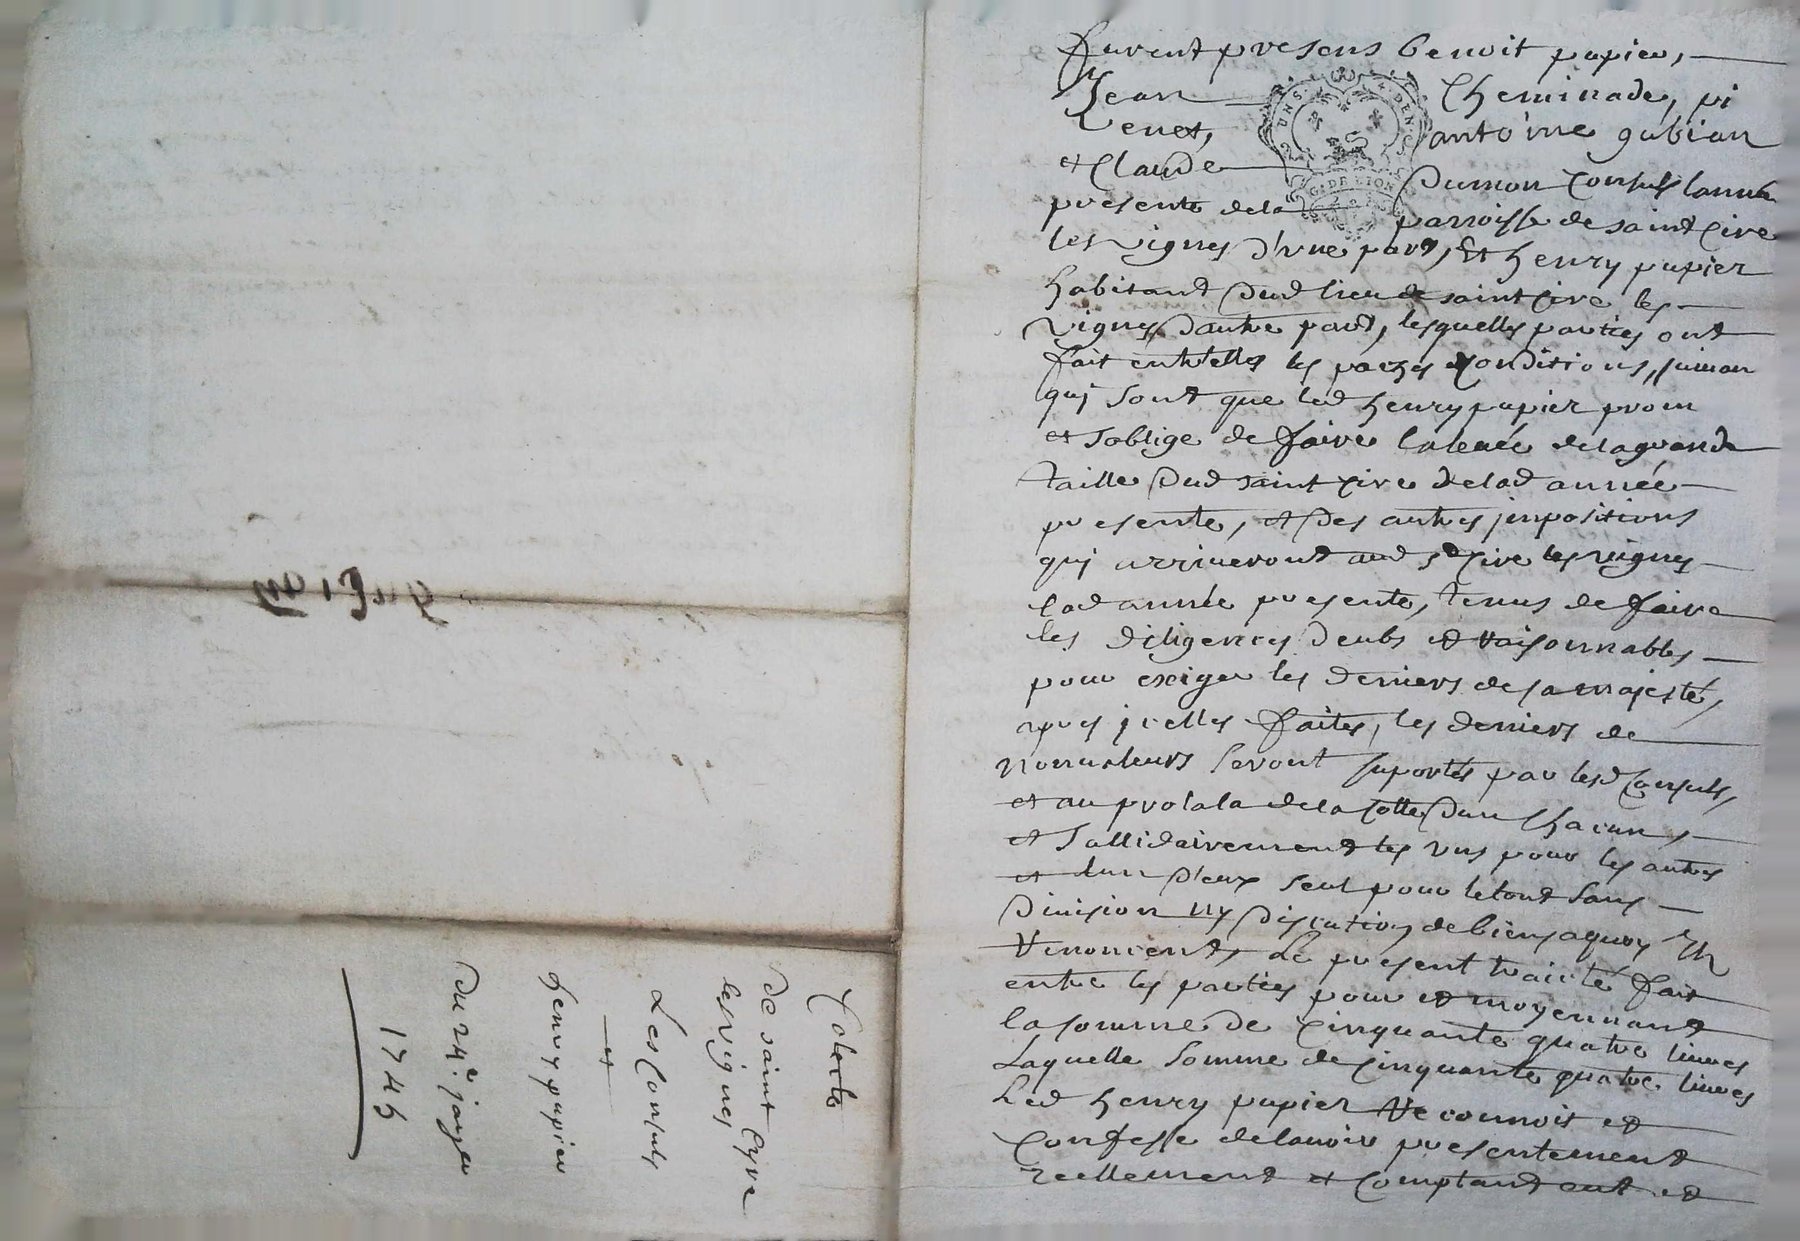 furent presens benoit papier,
Jean Cheminade, pi
Venet, antoine gubian
et Claude Dumon Consuls lannée
presente de la parroisse de saint Cire
les vignes d'vne part, Et henry papier
habitant dud lieu de saint Cire les
vignes dautre part, lesquelles parties ont
fait entr'elles les pactes & conditions, suivan
qui sont que led henry papier prom
et s'oblige de faire la levée de la grande
taille dud saint Cire de lad année
presente, et des autres jmpositions
qui arriveront aud st Cire les vignes
lad année presente, tenus de faire
les diligences deubs et raisonnables
pour exiger les deniers de sa majesté,
apres jcelles faites, les deniers de
nonvaleurs seront suportés par lesd Consuls,
et au prolata de la Cotte d'un Chacun,
et sollidairement les vns pour les autres
et lun d'eux seul pour le tout sans
division ny discution de biens a quoy Jls
renoncent, Le present traité fait
entre les parties pour et moyennant
la somme de Cinquante quatre livres
Laquelle somme de Cinquante quatre livres
Led henry papier reconnoit et
Confesse de lavoir presentement
reellement et Comptant eut et
de saint Cyre
les vignes
Les Consuls
et
henry papier
du 24e janer